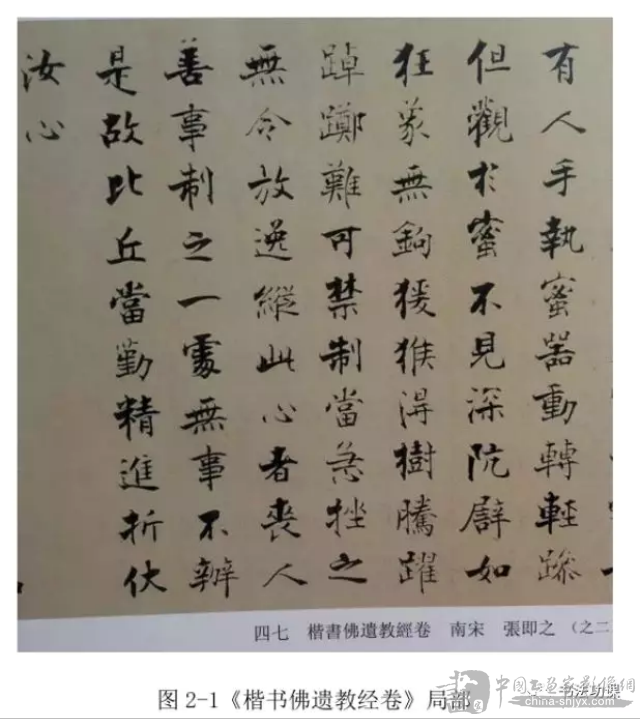 有人手執蜜器動轉輕躁
但觀於蜜不見深阬譬如
狂象無鉤猨猴淂樹騰躍
踔躑難可禁制當急挫之
無令放逸縱此心者喪人
善事制之一處無事不辨
是故比丘當勤精進折伏
汝心
四七 楷書佛遺教經卷 南宋 張即之 (之二
图 2-1《楷书佛遗教经卷》局部
书法功课
中国书画家影像网
www.china-shjyx.com